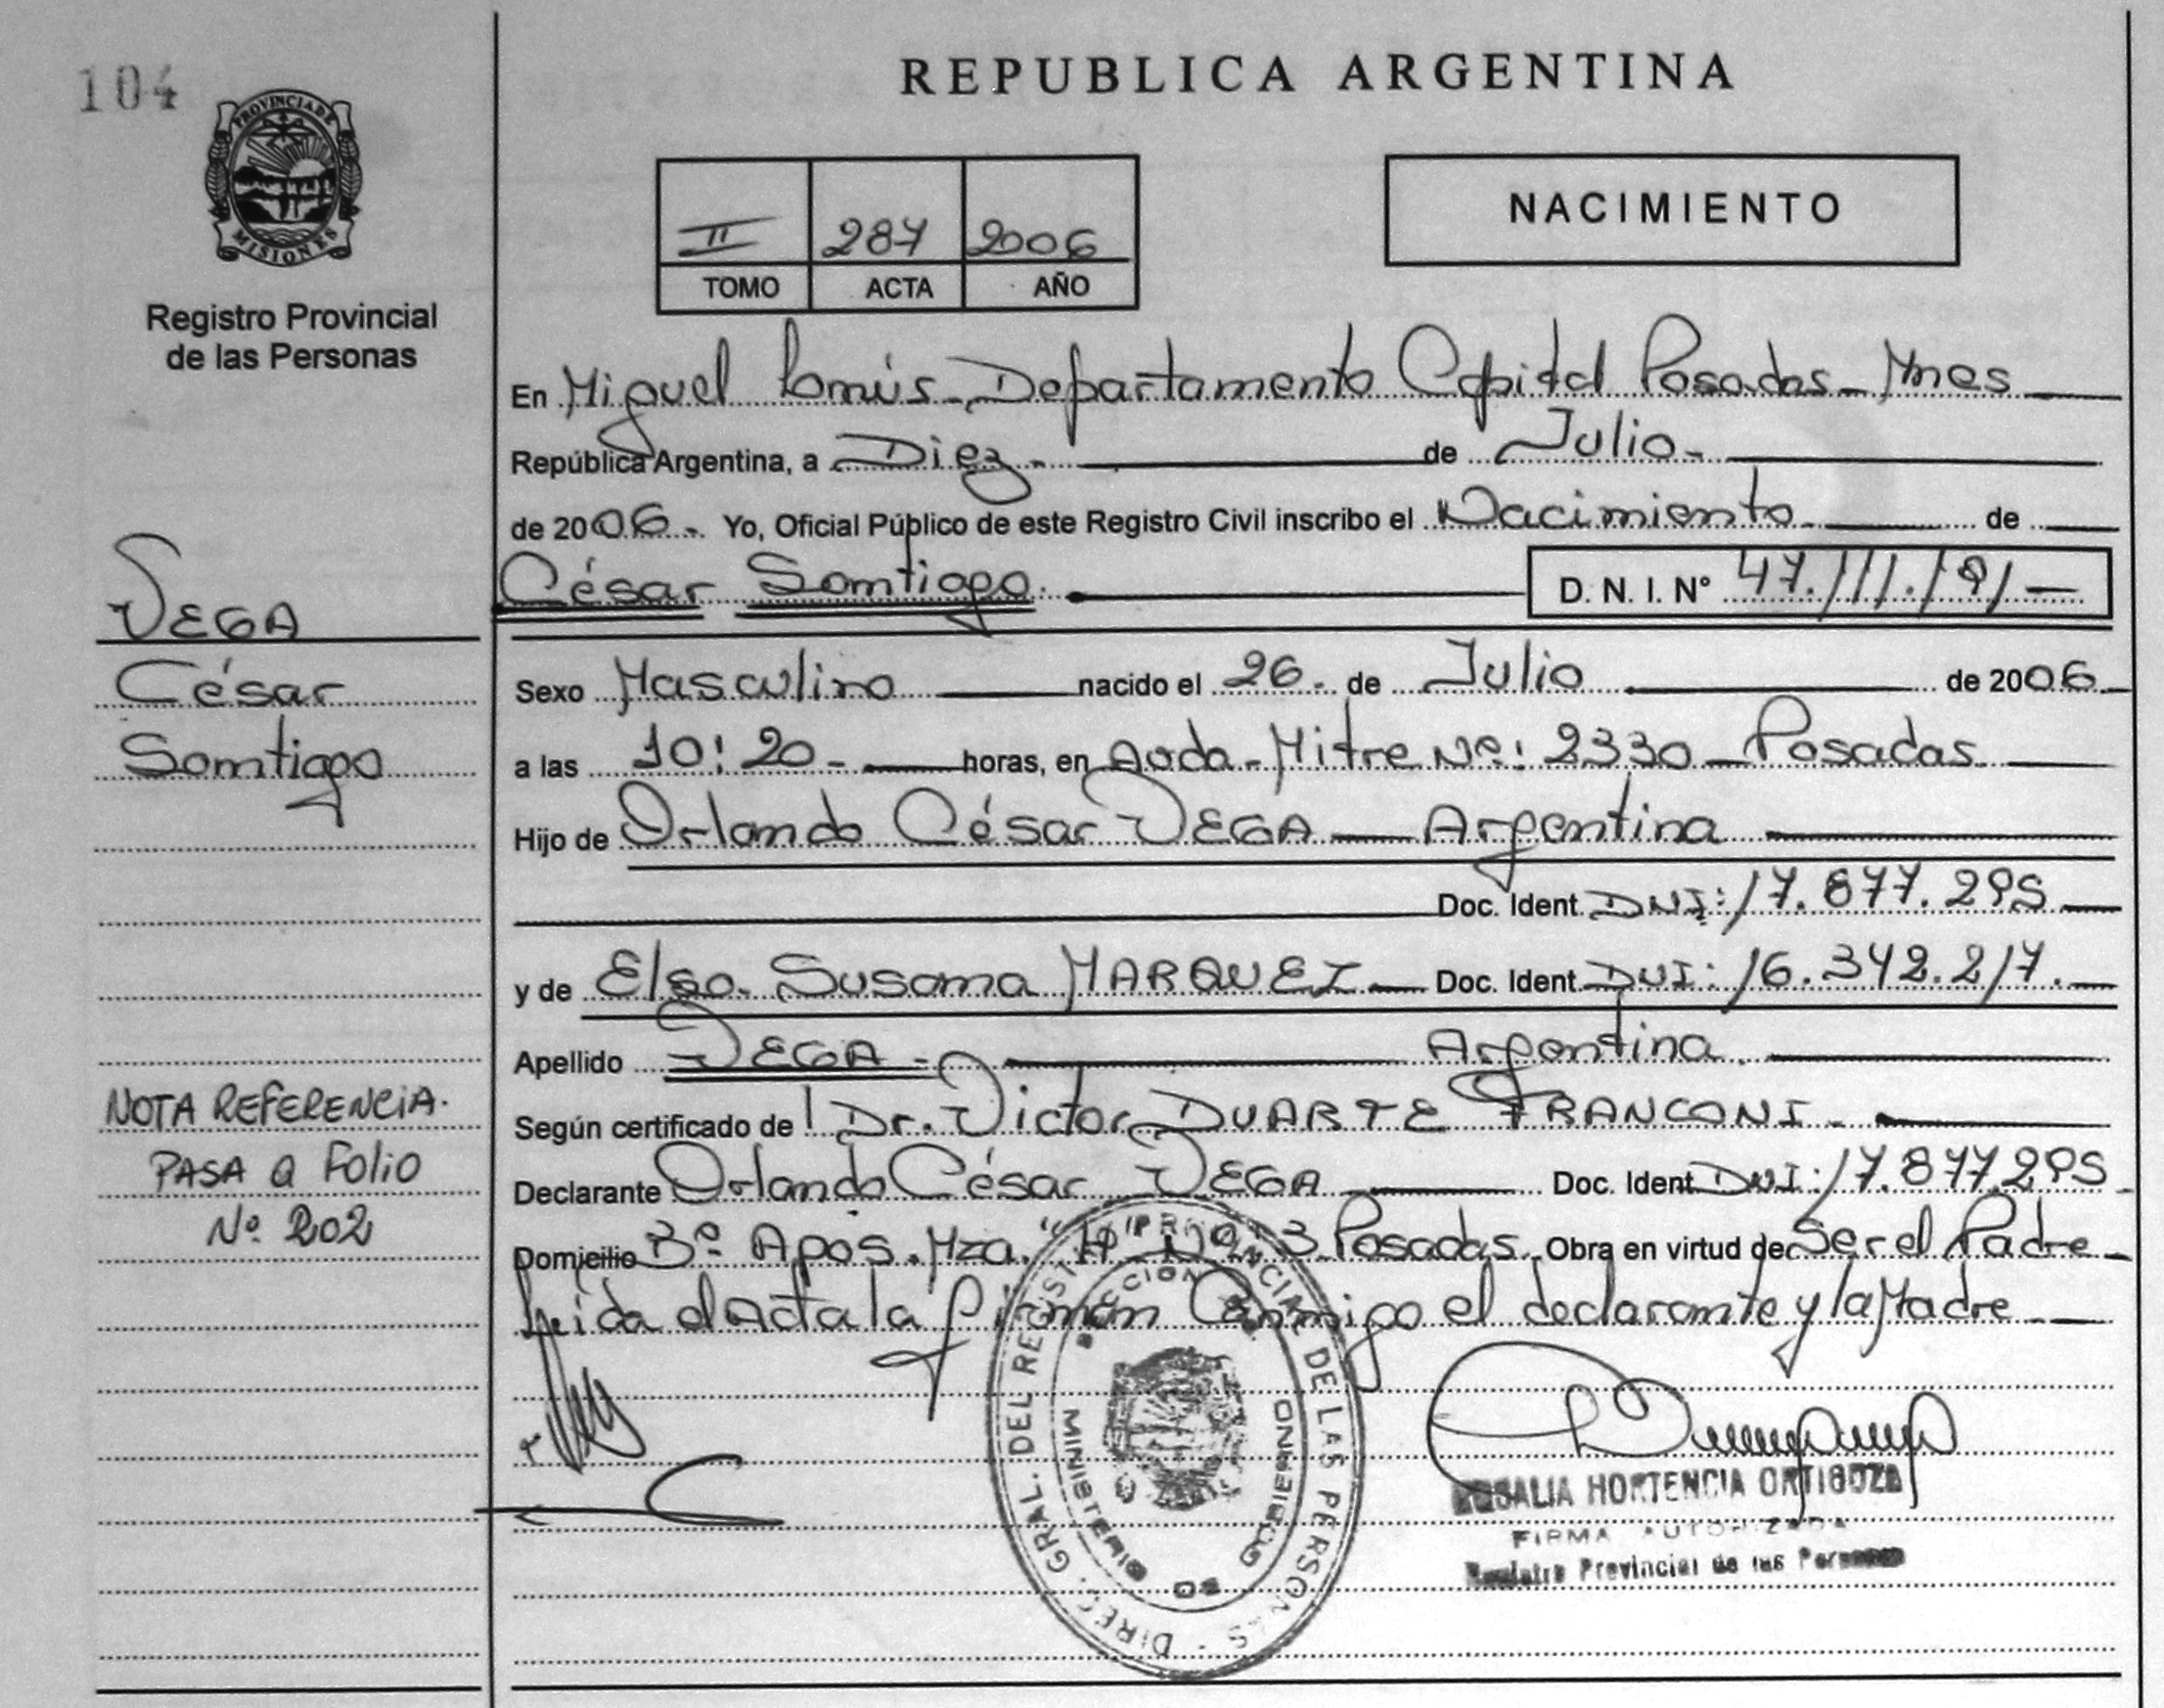 104
REPUBLICA ARGENTINA
PROVINCIA DE
MISIONES
Registro Provincial
de las Personas
II 287 2006
TOMO ACTA AÑO
NACIMIENTO
En Miguel Lanús - Departamento Capital Posadas - Mnes
República Argentina, a Diez - de Julio -
de 2006 - Yo, Oficial Público de este Registro Civil inscribo el Nacimiento de
César Santiago. D. N. I. N° 47.111.191 -
VEGA
César
Santiago
Sexo Masculino nacido el 26 - de Julio de 2006
a las 10:20 - horas, en Avda - Mitre Nº: 2330 - Posadas
Hijo de Orlando César VEGA - Argentina
Doc. Ident. DNI: 17.877.295
y de Elsa Susana MARQUEZ - Doc. Ident. DNI: 16.342.217.
Apellido VEGA - Argentina
Según certificado de Dr. Victor DUARTE FRANCONI -
Declarante Orlando César VEGA Doc. Ident. DNI: 17.877.295
Domicilio Bº Apos. Mza. "H" 3 Posadas. Obra en virtud de Ser el Padre
Leída el Acta la firman Conmigo el declarante y la Madre
NOTA REFERENCIA.
PASA a Folio
Nº 202
DIREC. GRAL. DEL REGIST. PROVINCIAL DE LAS PERSONAS
MINISTERIO DE GOBIERNO
ROSALIA HORTENCIA ORTIGOZA
FIRMA AUTORIZADA
Registro Provincial de las Personas